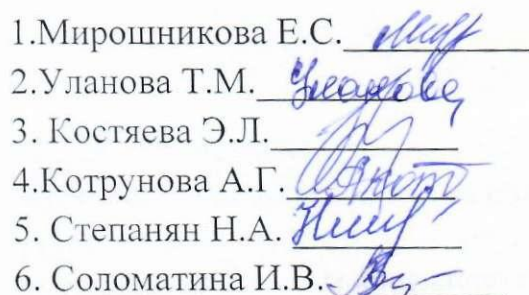 1.Мирошникова Е.С.
2.Уланова Т.М. Уланова
3. Костяева Э.Л.
4.Котрунова А.Г.
5. Степанян Н.А.
6. Соломатина И.В.